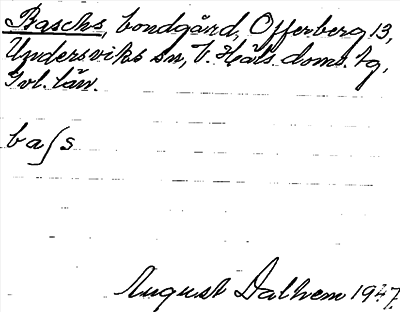 Baschs, bondgård, Offerberg 13,
Undersviks sn, V. Häls. doms. tg,
Gvl. län.
ba∫s
August Dalhem 1947.